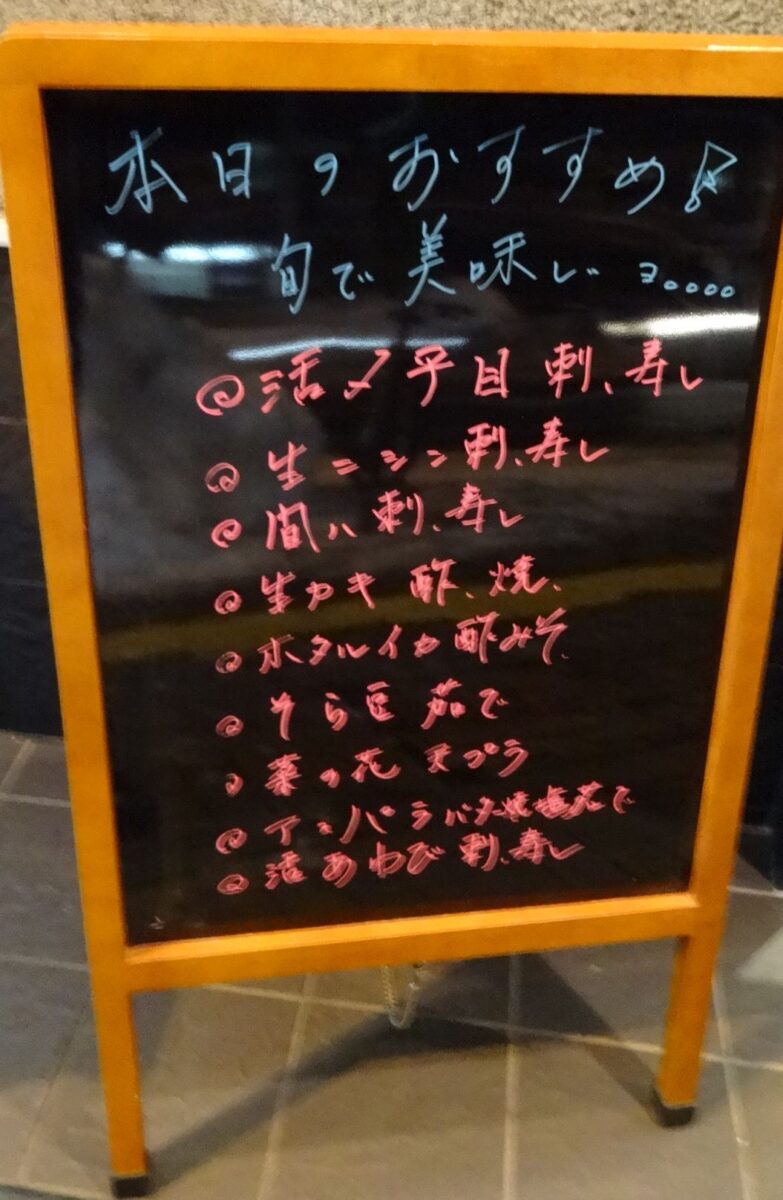 本日のおすすめ♪
旬で美味しいヨ。。。。
◎活〆平目 刺、寿し
◎生ニシン刺、寿し
◎間八 刺、寿し
◎生カキ 酢、焼、
◎ホタルイカ酢みそ
◎そら豆 茹で
◎菜の花 天プラ
◎アスパラ バター焼 塩茹で
◎活あわび 刺、寿し